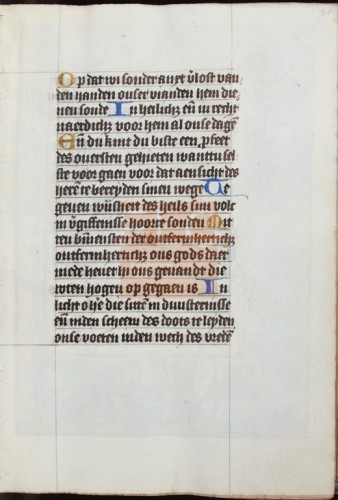 Op dat wi sonder anxt v̄lost van
den handen onser vianden hem die
nen sonde In heilichz en̄ in recht
uaerdichz voor hem al onse dagē
En̄ du kint du biste een pfeet
des ouersten geheeten want tu sel
ste voor gaen voor dat aensicht des
herē te bereyden sinen wege Te
geuen wijsheit des heils sijn volc
in v̄giffenisse hoorre sonden Mit
ten binnensten der ontfermherticz
ontfermherticz ons gods daer
mede heuet hi ons genandt die
wten hogen op gegaen is In
licht o hē die sittē in duusternisse
en̄ inden scheem des doots te leyden
onse voeten inden wech des vredē